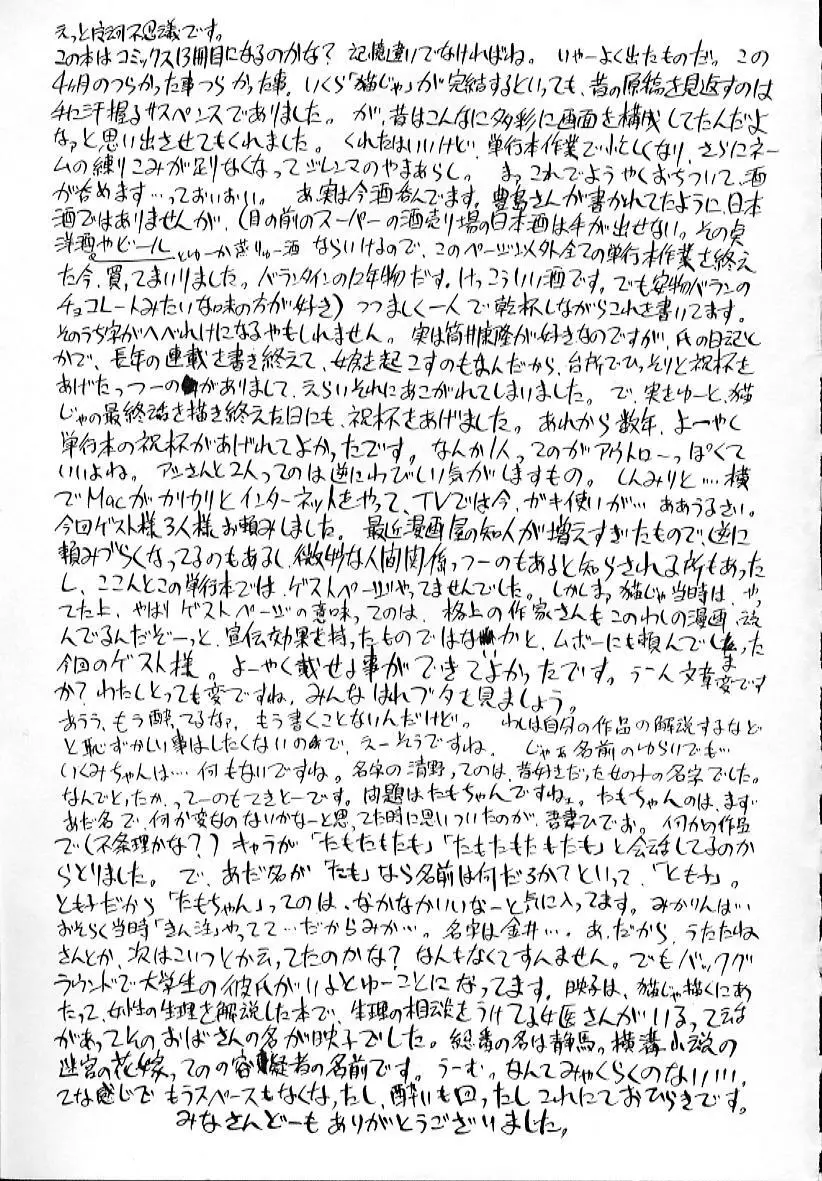 えっと摩訶不思議です。
この本はコミックス13冊目になるのかな? 記憶違いでなければね。 いやーよく出たものだっ。 この
4ヶ月のつらかった事つらかった事。いくら「猫じゃ」が完結するといっても、昔の原稿を見返すのは
手に汗握るサスペンスでありました。 が、昔はこんなに多彩に画面を構成してたんだよ
なァと思い出させてもくれました。 くれたはいいけど、単行本作業で忙しくなり、さらにネー
ムの練りこみが足りなくなってジレンマのやまあらし。 まっこれでようやくおちついて、酒
が呑めます…っておいおい。 あ、実は今酒呑んでます。豊島さんが書かれてたように、日本
酒ではありませんが、(目の前のスーパーの酒売り場の日本酒は手が出せない。その点
洋酒やビールとゆーか蒸りゅー酒 ならいけるので、このページ以外全ての単行本作業を終え
た今、買ってまいりました。バランタインの12年物だす。けっこういい酒です。でも安物バランの
チョコレートみたいな味の方が好き) つつましく一人で乾杯しながらこれを書いてます。
そのうち字がへべれけになるやもしれません。 実は筒井康隆が好きなのですが、氏の日記と
かで、長年の連載を書き終えて、女房を起こすのもなんだから、台所でひっそりと祝杯を
あげたっつーのがありまして、えらいそれにあこがれてしまいました。 で、実をゆーと、猫
じゃの最終話を描き終えた日にも、祝杯をあげました。 あれから数年、よーやく
単行本の祝杯があげれてよかったです。なんか1人ってのがアウトローっぽくて
いいよね。 アシさんと2人ってのは逆にわびしい気がしますもの。 しんみりと…。横
でMacがカリカリとインターネットをやって、TVでは今、ガキ使いが… ああうるさい。
今回ゲスト様3人様お頼みしました。 最近漫画屋の知人が増えすぎたもので、逆に
頼みづらくなってるのもあるし、微妙な人間関係っつーのもあると知らされる所もあった
し、ここんとこの単行本では、ゲストページやってませんでした。しかしまっ猫じゃ当時は、やっ
てた上、やはりゲストページの意味ってのは、格上の作家さんもこのわしの漫画、読
んでるんだぞーっと、宣伝効果を持ったものではないかと、ムボーにも頼んでしまった
今回のゲスト様。 よーやく載せる事ができてよかったです。 うーん文章変です
か?わたしとっても変ですね、みんなはれブタを見ましょう。
あうう、もう酔ってるなァ、もう書くことないんだけど。 わしは自分の作品の解説するなど
と恥ずかしい事はしたくないので、えーそうですね。 じゃぁ名前のゆらいでも…
いくみちゃんは… 何もないですね。名字の清野ってのは、昔好きだった女の子の名字でした。
なんでとったか、ってーのもてきとーです。問題はたもちゃんですねェ。たもちゃんのは、まず
あだ名で、何か変なのないかなーと思ってた時に思いついたのが、吾妻ひでお。何かの作品
で(不条理かな?) キャラが「たもたもたも」「たもたもたもたも」と会話してるのか
らとりました。 で、あだ名が「たも」なら名前は何だろかてといって、「とも子」。
とも子だから「たもちゃん」ってのは、なかなかいいなーと気に入ってます。みかりんは…
おそらく当時「きん注」やってて…だからみか…。名字は金井…。あ、だから、うたたね
さんとか、次はこいつとか云ってたのかな? なんもなくてすんません。でもバックグ
ラウンドで大学生の彼氏がいるとゆーことになってます。 映子は、猫じゃ描くにあ
たって、女性の生理を解説した本で、生理の相談をうけてる女医さんがいるって話
があってそのおばさんの名が映子でした。 総番の名は静馬。横溝小説の
迷宮の花嫁ってのの容疑者の名前です。うーむ。なんてみゃくらくのない!!!、
てな感じで もうスペースもなくなったし、酔いも回ったしこれにておひらきです。
みなさんどーもありがとうございました。